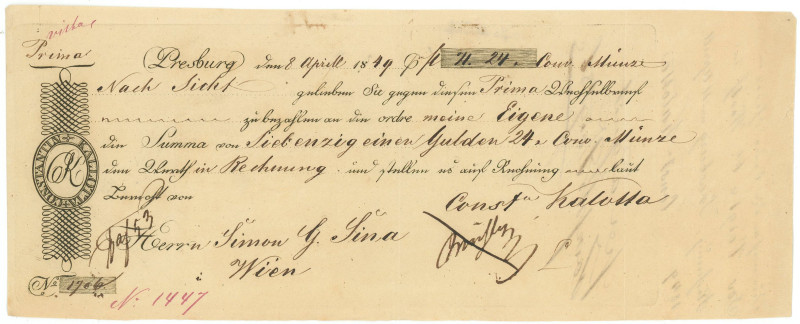 Prima
Presburg den 8 Aprill 1849 Pf f 71. 24 x Conv Münze
Nach Sicht gelieben Sie gegen diesen Prima Wechselbrief
zu bezahlen an die ordre meine Eigene
die Summa von Siebenzigeinen Gulden 24 x Conv. Münze
den Werth in Rechnung und stellen es auf Rechnung laut
Bericht von
Const. Kalotta
Herrn Simon G. Sina
Wien
CONSTANTIN KALLOTTA
K
No 1706
N. 1447